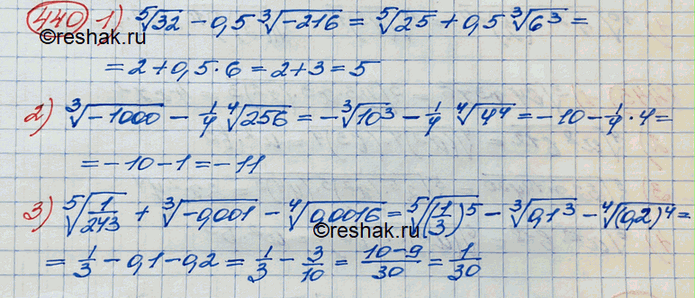 440 1) ⁵√32 − 0,5 ³√−216 = ⁵√25 + 0,5 ³√6³ =
©reshak.ru
= 2 + 0,5 · 6 = 2 + 3 = 5
2) ³√−1000 − 1/4 ⁴√256 = −³√10³ − 1/4 ⁴√4⁴ = −10 − 1/4 · 4 =
= −10 − 1 = −11
3) ⁵√1/243 + ³√−0,001 − ⁴√0,0016 = ⁵√(1/3)⁵ − ³√0,1³ − ⁴√(0,2)⁴ =
©reshak.ru
= 1/3 − 0,1 − 0,2 = 1/3 − 3/10 = 10−9/30 = 1/30